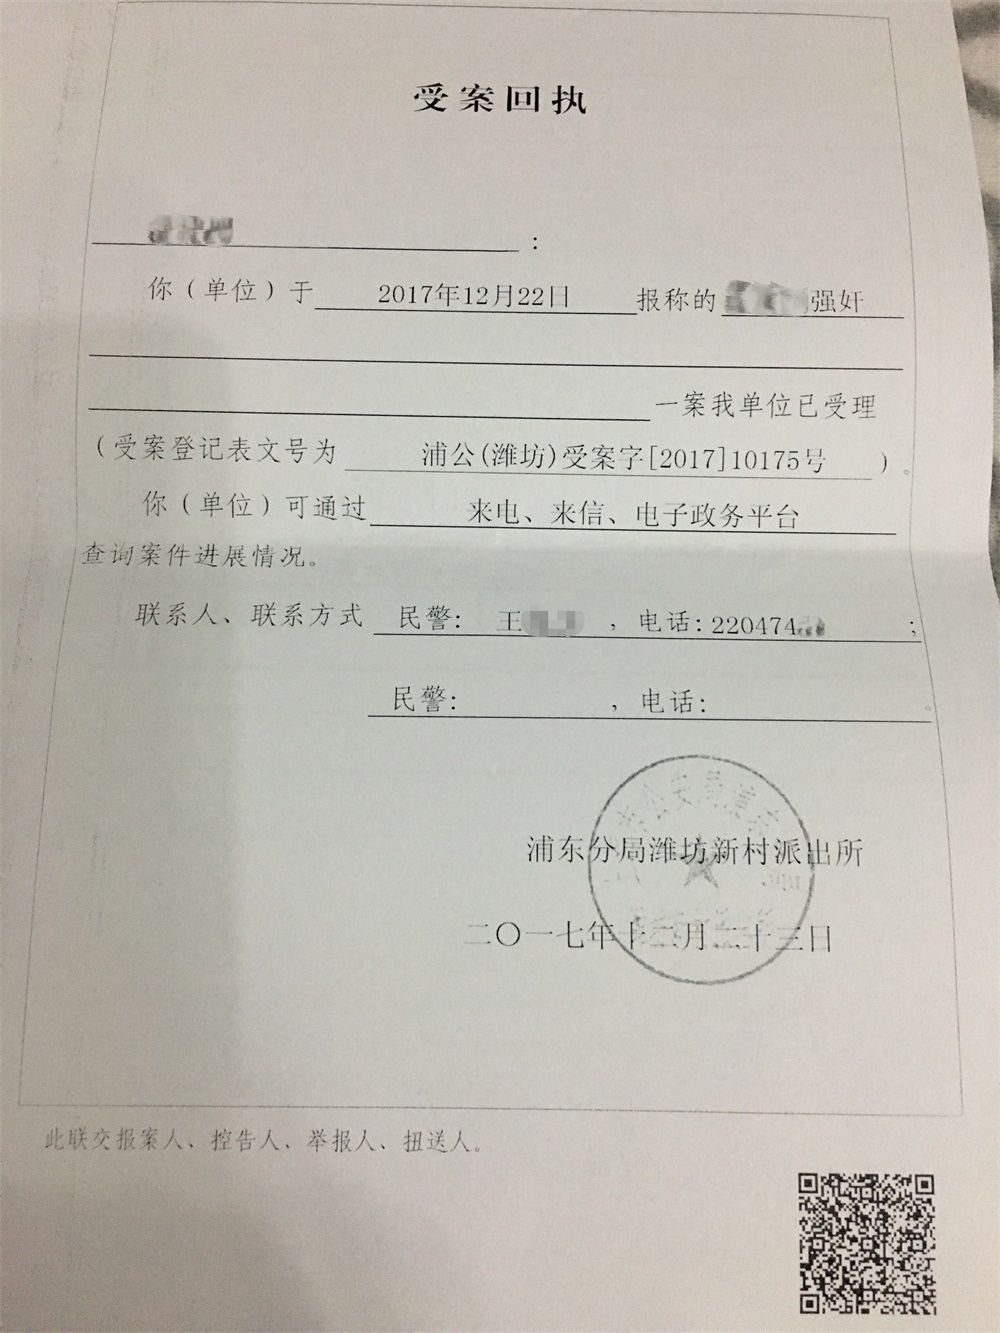 受案回执
:
你（单位）于 2017年12月22日 报称的 强奸
一案我单位已受理
（受案登记表文号为 浦公(潍坊)受案字[2017]10175号 ）。
你（单位）可通过 来电、来信、电子政务平台
查询案件进展情况。
联系人、联系方式 民警: 王 ，电话: 220474 ;
民警: ，电话: 。
浦东分局潍坊新村派出所
二〇一七年十二月二十三日
此联交报案人、控告人、举报人、扭送人。